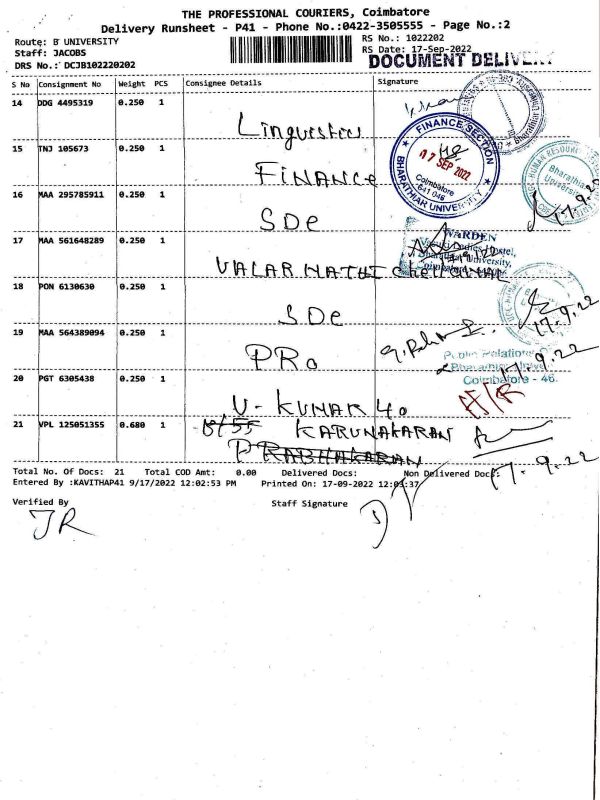 THE PROFESSIONAL COURIERS, Coimbatore
Delivery Runsheet - P41 - Phone No.:0422-3505555 - Page No.:2
Route: B UNIVERSITY
RS No.: 1022202
Staff: JACOBS
RS Date: 17-Sep-2022
DRS No.: DCJB102220202
DOCUMENT DELIVERY
S No Consignment No Weight PCS Consignee Details Signature
14 DDG 4495319 0.250 1
Linguistics
15 TNJ 105673 0.250 1
FINANCE
FINANCE SECTION
17 SEP 2022
Coimbatore
641 046
BHARATHIAR UNIVERSITY
HUMAN RESOURCE
Bharathiar
University
17.9.22
16 MAA 295785911 0.250 1
SDe
17 MAA 561648289 0.250 1
VALARMATHI
WARDEN
Bharathiar University,
18 PON 6130630 0.250 1
SDe
17.9.22
19 MAA 564389094 0.250 1
PRo
Public Relations
Bharathiar
Coimbatore - 46.
17.9.22
20 PGT 6305438 0.250 1
V-KUMAR 40
H/R
21 VPL 125051355 0.680 1
KARUNAKARAN
PRABHAKARAN
17.9.22
Total No. Of Docs: 21 Total COD Amt: 0.00 Delivered Docs: Non Delivered Docs:
Entered By :KAVITHAP41 9/17/2022 12:02:53 PM Printed On: 17-09-2022 12:03:37
Verified By Staff Signature
JR